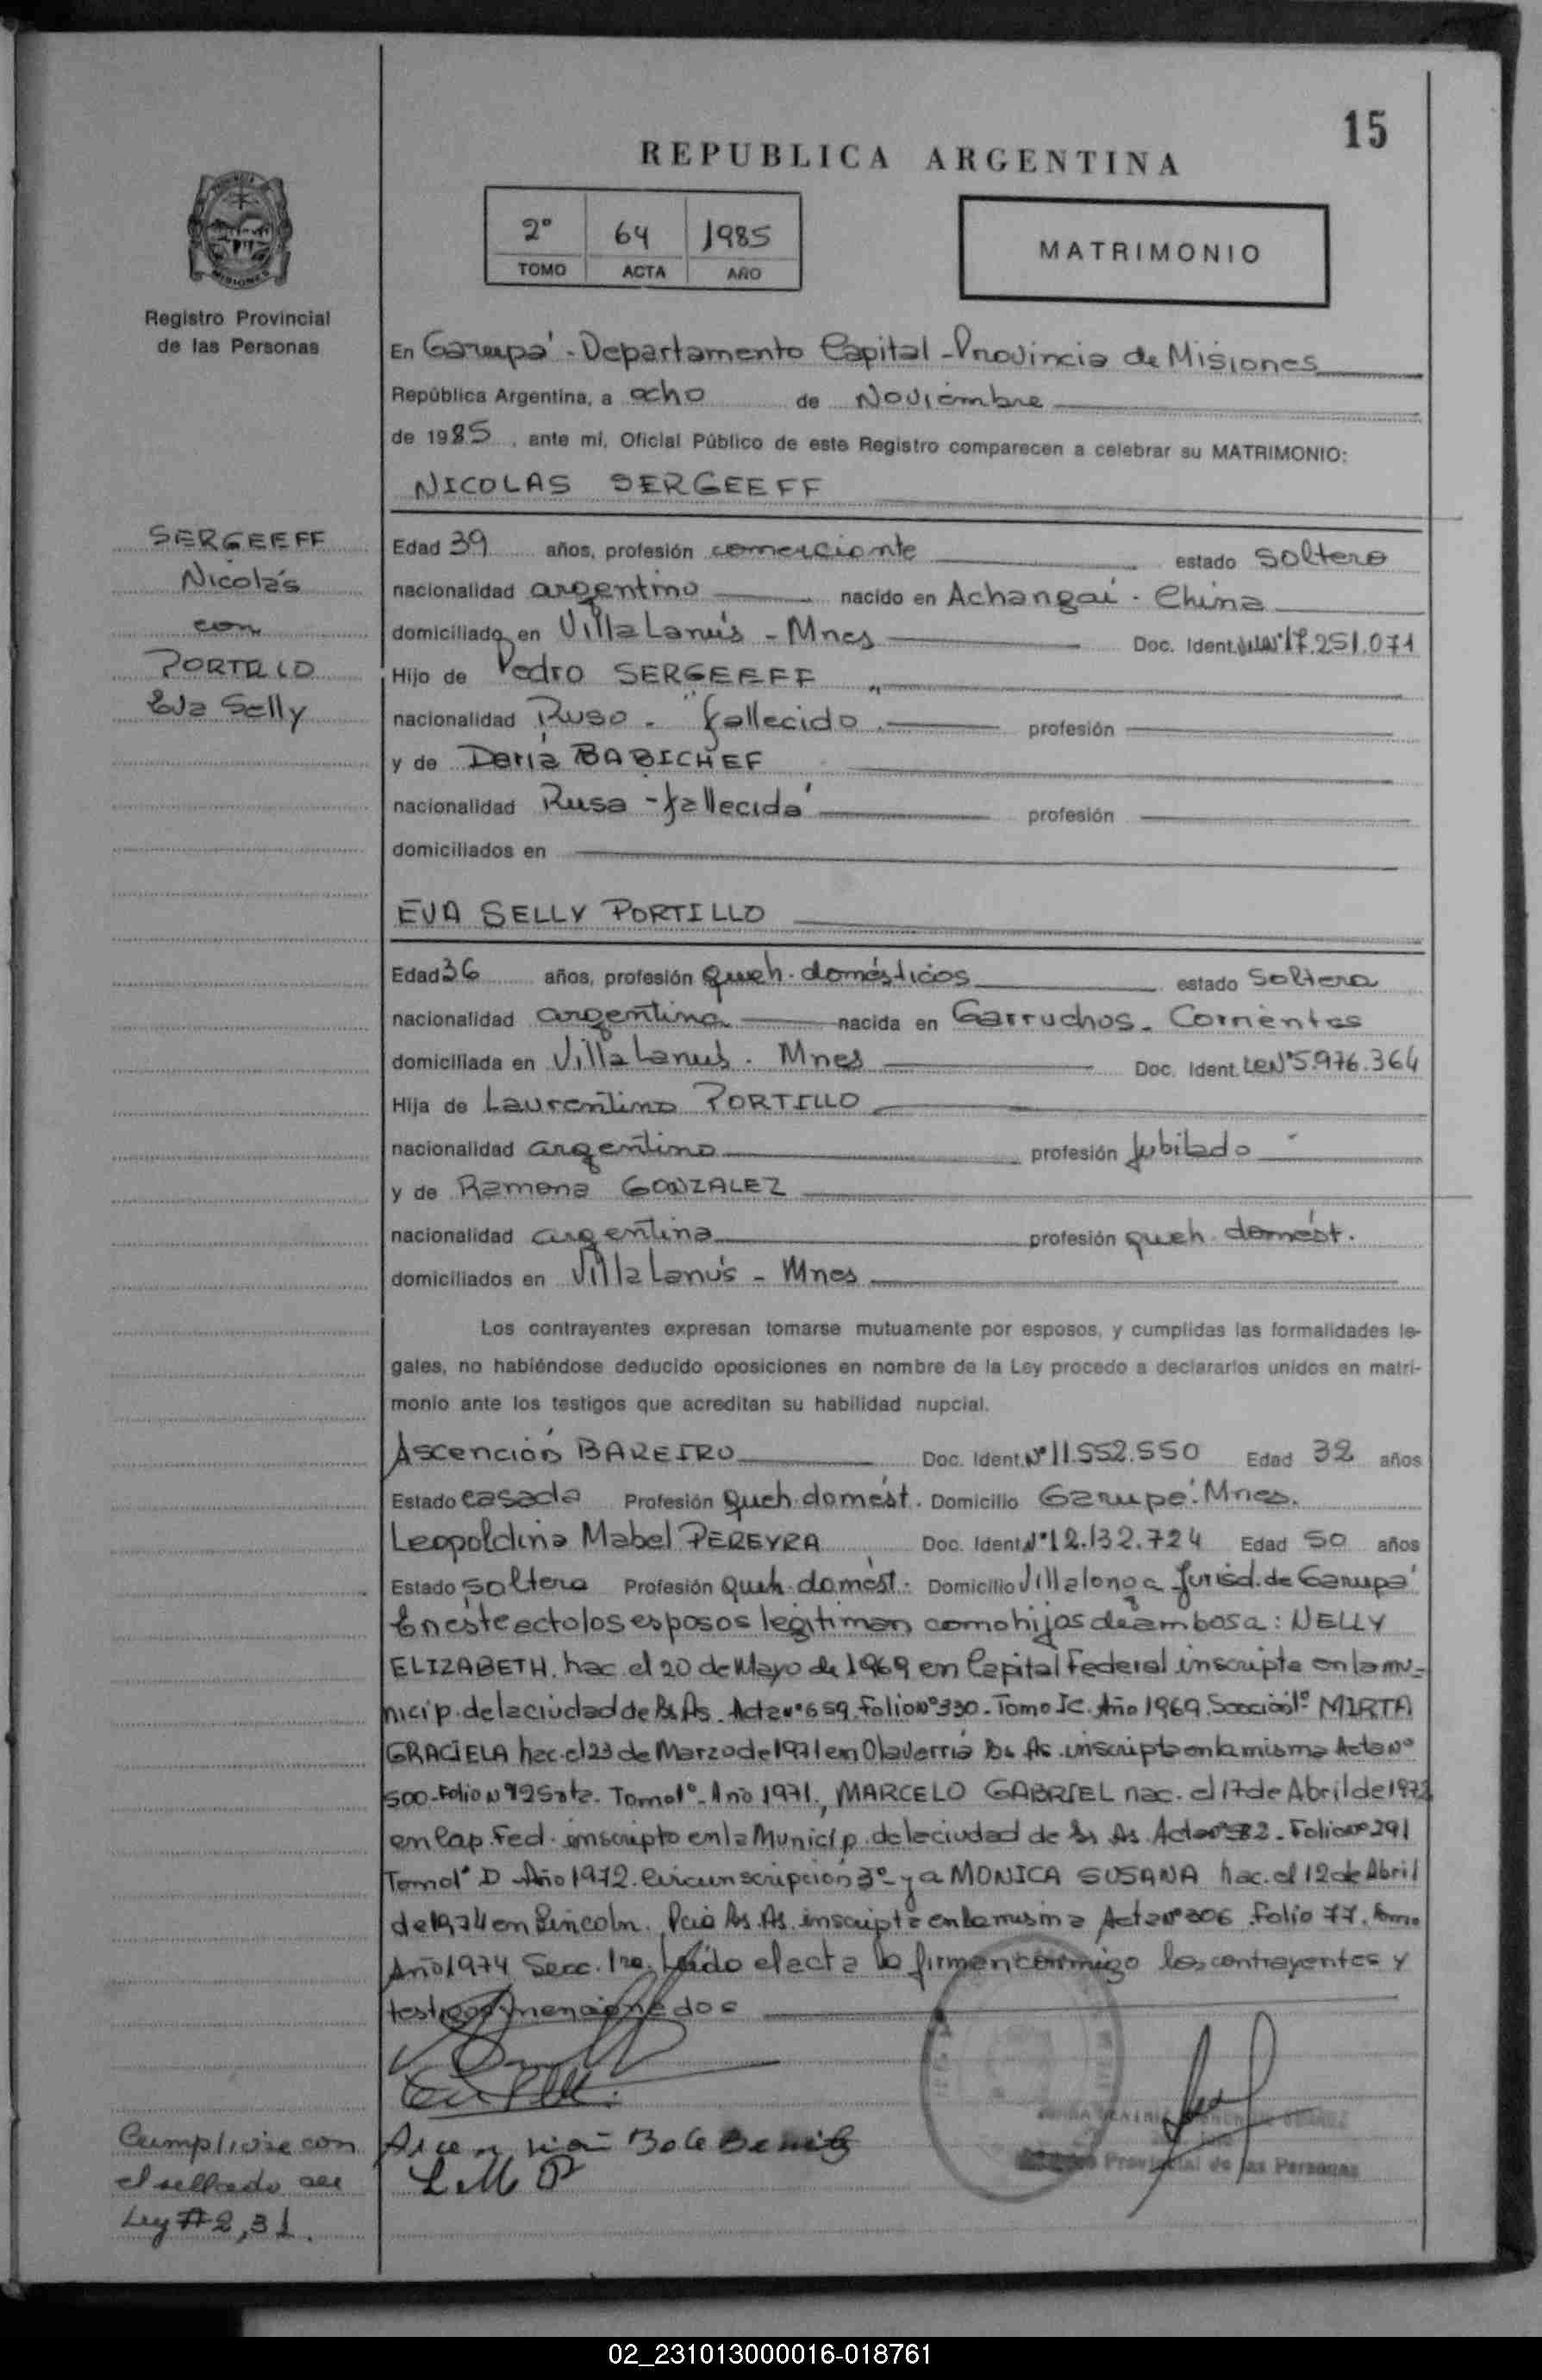 15
REPUBLICA ARGENTINA
2º 64 1985
TOMO ACTA AÑO
MATRIMONIO
Registro Provincial
de las Personas
En Garupá - Departamento Capital - Provincia de Misiones
República Argentina, a ocho de Noviembre
de 1985, ante mí, Oficial Público de este Registro comparecen a celebrar su MATRIMONIO:
NICOLAS SERGEEFF
SERGEEFF
Nicolás
con
PORTILLO
Eva Selly
Edad 39 años, profesión comerciante estado soltero
nacionalidad argentino nacido en Achangai - China
domiciliado en Villa Lanús - Mnes Doc. Ident. Nº 17.251.071
Hijo de Pedro SERGEEFF
nacionalidad Ruso - fallecido profesión
y de Daria BABICHEF
nacionalidad Rusa - fallecida profesión
domiciliados en
EVA SELLY PORTILLO
Edad 36 años, profesión queh. domésticos estado soltera
nacionalidad argentina nacida en Garruchos - Corrientes
domiciliada en Villa Lanus - Mnes Doc. Ident. LC Nº 5.976.364
Hija de Laurentino PORTILLO
nacionalidad argentino profesión jubilado
y de Ramona GONZALEZ
nacionalidad argentina profesión queh. domést.
domiciliados en Villa Lanús - Mnes
Los contrayentes expresan tomarse mutuamente por esposos, y cumplidas las formalidades le-
gales, no habiéndose deducido oposiciones en nombre de la Ley procedo a declararlos unidos en matri-
monio ante los testigos que acreditan su habilidad nupcial.
Ascención BAREIRO Doc. Ident. Nº 11.552.550 Edad 32 años
Estado casada Profesión queh. domést. Domicilio Garupá - Mnes.
Leopoldina Mabel PEREYRA Doc. Ident. Nº 12.132.724 Edad 50 años
Estado soltera Profesión queh. domést. Domicilio Villalonga Jurisd. de Garupá
En este acto los esposos legitiman como hijos de ambos a: NELLY
ELIZABETH. nac. el 20 de Mayo de 1969 en Capital Federal inscripta en la mu-
nicip. de la ciudad de Bs As. Acta nº 659. Folio nº 330 - Tomo IC. Año 1969. Sección 1º MIRTA
GRACIELA nac. el 23 de Marzo de 1971 en Olavarria Bs. As. inscripta en la misma Acta Nº
500 - Folio Nº Tomo 1º - Año 1971., MARCELO GABRIEL nac. el 17 de Abril de 1972
en Cap. Fed. inscripto en la Municip. de la ciudad de Bs As. Acta nº Folio nº 291
Tomo 1º D Año 1972. Circunscripción 3º y a MONICA SUSANA nac. el 12 de Abril
de 1974 en Lincoln. Pcia Bs. As. inscripta en la misma Acta nº 306 Folio 77. Tomo
Año 1974 Secc. 1ra. Leído el acta la firman conmigo los contrayentes y
testigos mencionados
L M P
Provincial de las Personas
Cumplióse con
el sellado
Ley
02_231013000016-018761